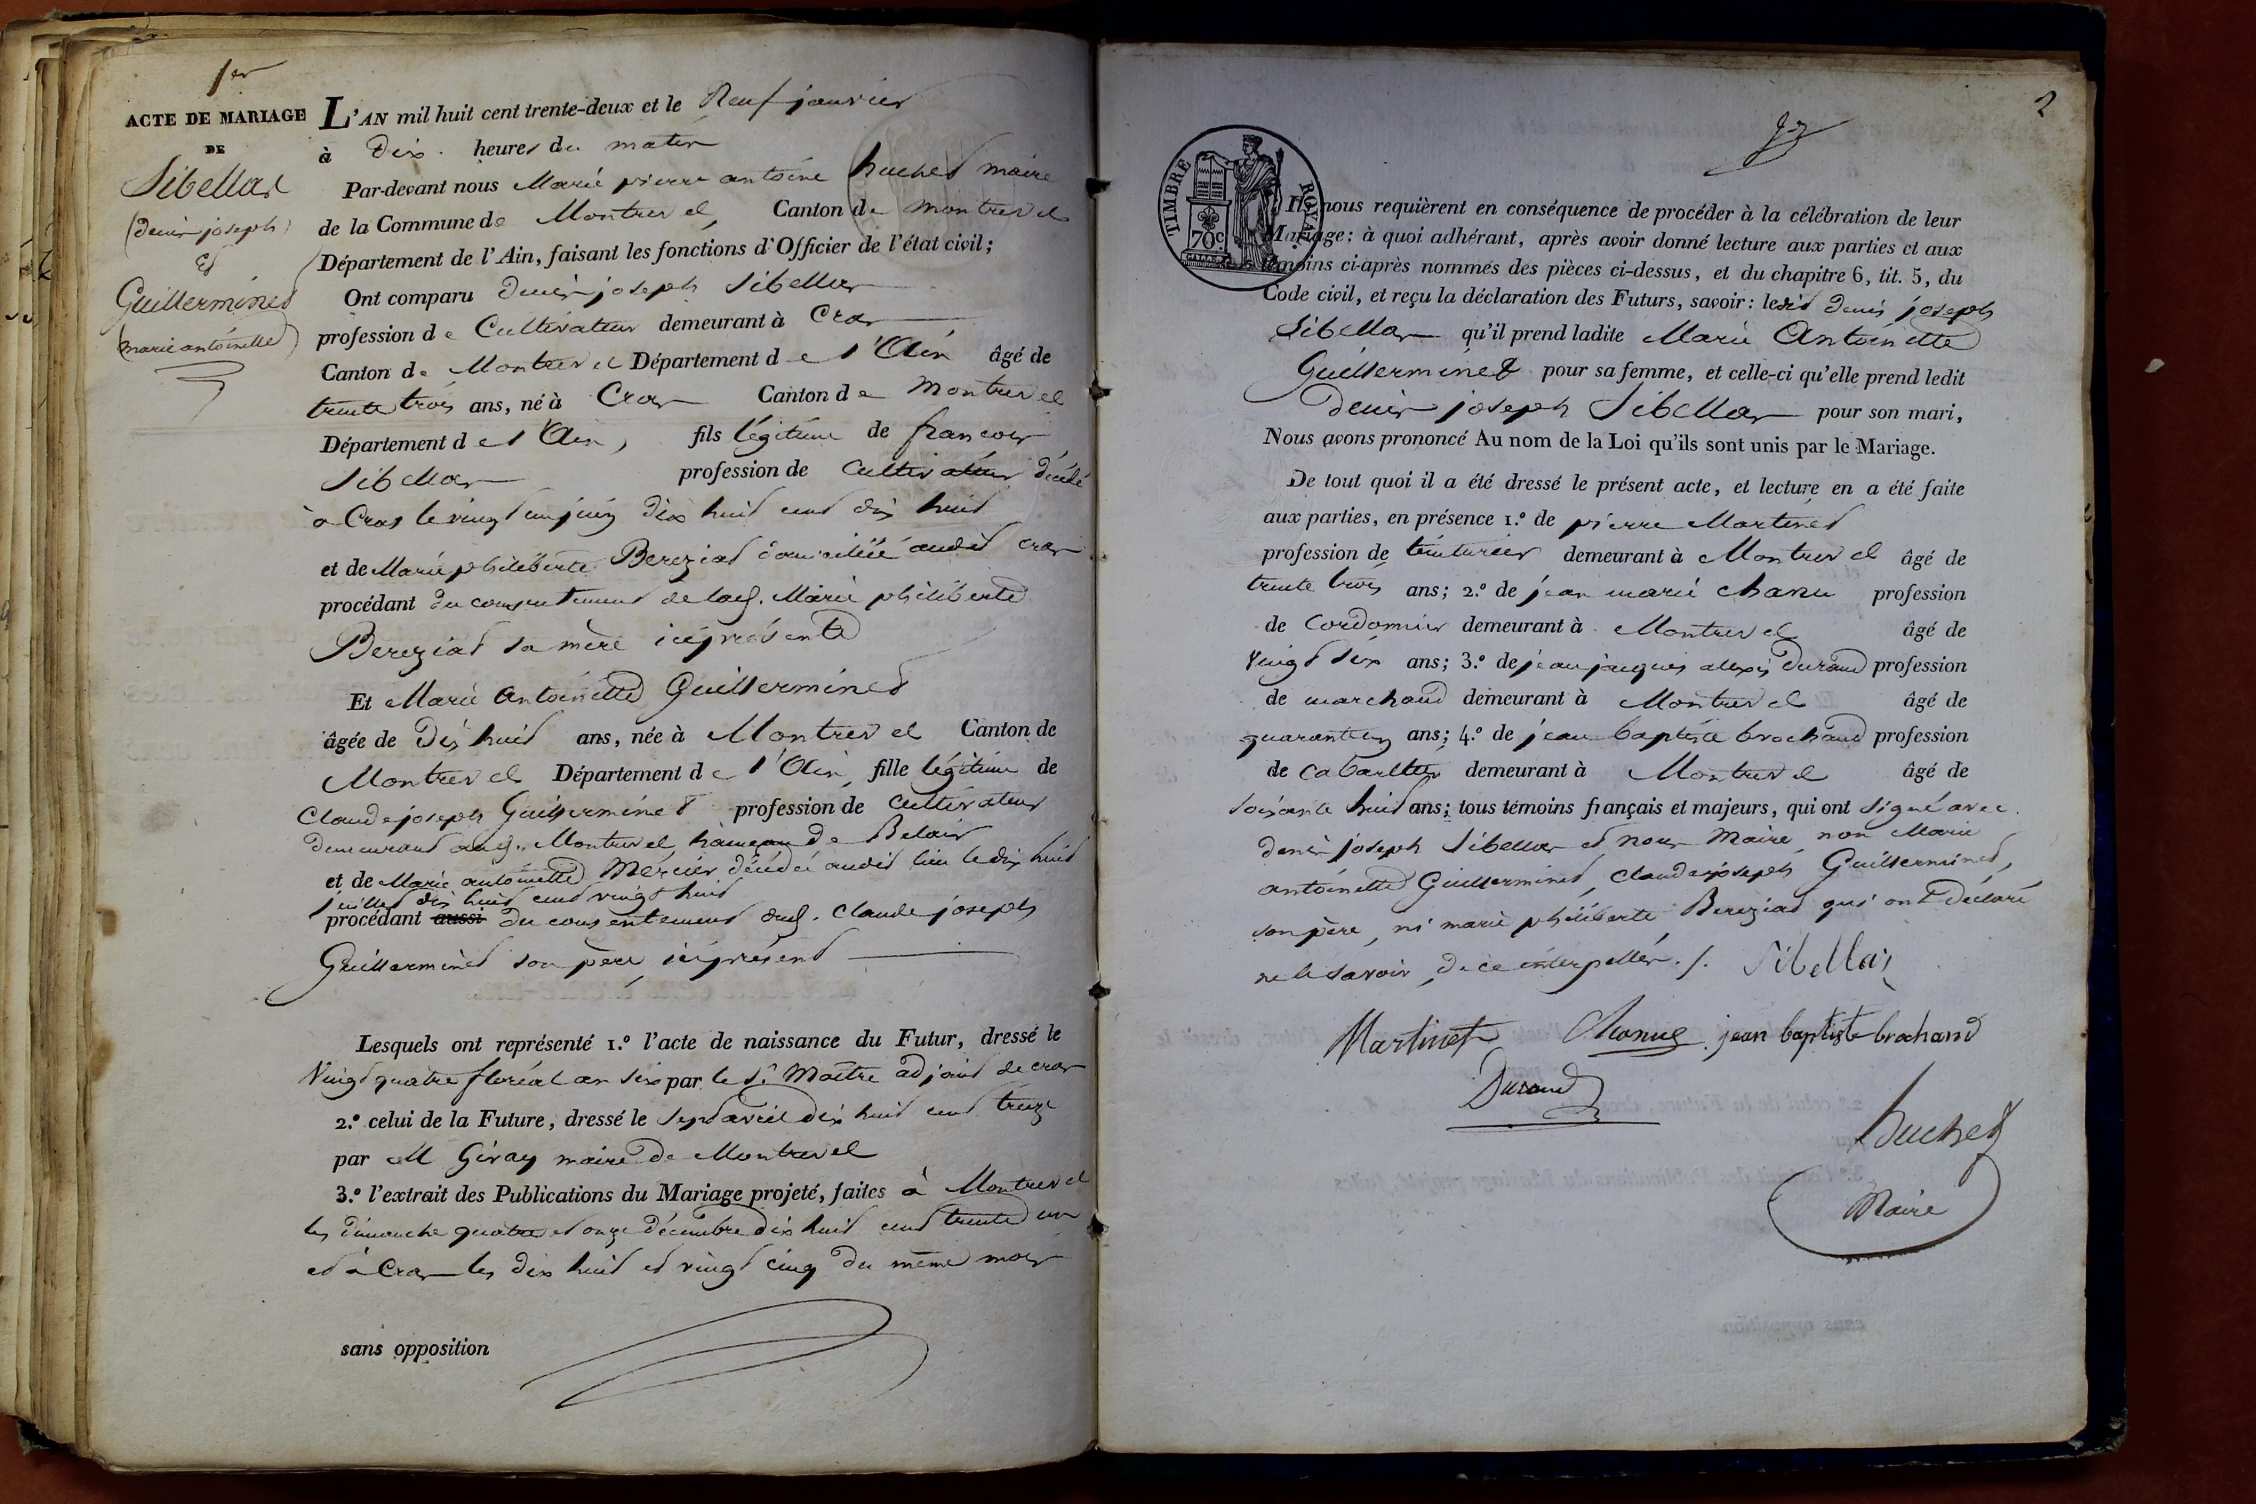 1er
ACTE DE MARIAGE
DE
Sibellas
(denis joseph)
Et
Guillerminet
(marie antoinette)
L'AN mil huit cent trente-deux et le Neuf janvier
à Dix heures du matin
Par-devant nous Marie pierre antoine huchet maire
de la Commune de Montrevel, Canton de Montrevel
Département de l'Ain, faisant les fonctions d'Officier de l'état civil;
Ont comparu denis joseph Sibellas
profession de Cultivateur demeurant à Cras
Canton de Montrevel Département de l'Ain âgé de
trente trois ans, né à Cras Canton de Montrevel
Département de l'Ain, fils légitime de françois
Sibellas profession de Cultivateur décédé
à Cras le vingt un juin dix huit cent dix huit
et de Marie philiberte Bereziat domiciliée audit cras
procédant du consentement de lad. Marie philiberte
Bereziat sa mère ici présente
Et Marie Antoinette Guillerminet
âgée de Dix huit ans, née à Montrevel Canton de
Montrevel Département de l'Ain, fille légitime de
Claude joseph Guillerminet profession de Cultivateur
demeurant aud. Montrevel, hameau de Belair
et de Marie antoinette Mercier décédée audit lieu le dix huit
juillet dix huit cent vingt huit
procédant aussi du consentement dud. Claude joseph
Guillerminet son père, ici présent
Lesquels ont représenté 1.º l'acte de naissance du Futur, dressé le
Vingt quatre floréal an six par le Sr Maître adjoint de cras
2.º celui de la Future, dressé le Sept avril dix huit cent treize
par M Giray maire de Montrevel
3.º l'extrait des Publications du Mariage projeté, faites à Montrevel
les dimanche quatre et onze décembre dix huit cent trente un
et à Cras les dix huit et vingt cinq du même mois
sans opposition
2
TIMBRE ROYAL
70c.
Ils nous requièrent en conséquence de procéder à la célébration de leur
Mariage: à quoi adhérant, après avoir donné lecture aux parties et aux
témoins ci-après nommés des pièces ci-dessus, et du chapitre 6, tit. 5, du
Code civil, et reçu la déclaration des Futurs, savoir: ledit denis joseph
Sibellas qu'il prend ladite Marie Antoinette
Guillerminet pour sa femme, et celle-ci qu'elle prend ledit
denis joseph Sibellas pour son mari,
Nous avons prononcé Au nom de la Loi qu'ils sont unis par le Mariage.
De tout quoi il a été dressé le présent acte, et lecture en a été faite
aux parties, en présence 1.º de pierre Martinet
profession de teinturier demeurant à Montrevel âgé de
trente trois ans; 2.º de jean marie chanu profession
de Cordonnier demeurant à Montrevel âgé de
Vingt six ans; 3.º de jean jacques alexis Durand profession
de marchand demeurant à Montrevel âgé de
quarante un ans; 4.º de jean baptiste brochand profession
de Cabartier demeurant à Montrevel âgé de
soixante huit ans; tous témoins français et majeurs, qui ont signé avec
denis joseph Sibellas et nous Maire, non Marie
antoinette Guillerminet, Claude joseph Guillerminet,
son père, ni marie philiberte Bereziat qui ont déclaré
ne le savoir, de ce interpellés ./. Sibellas
Martinet Chanue jean baptiste brochand
Durand
huchet
Maire